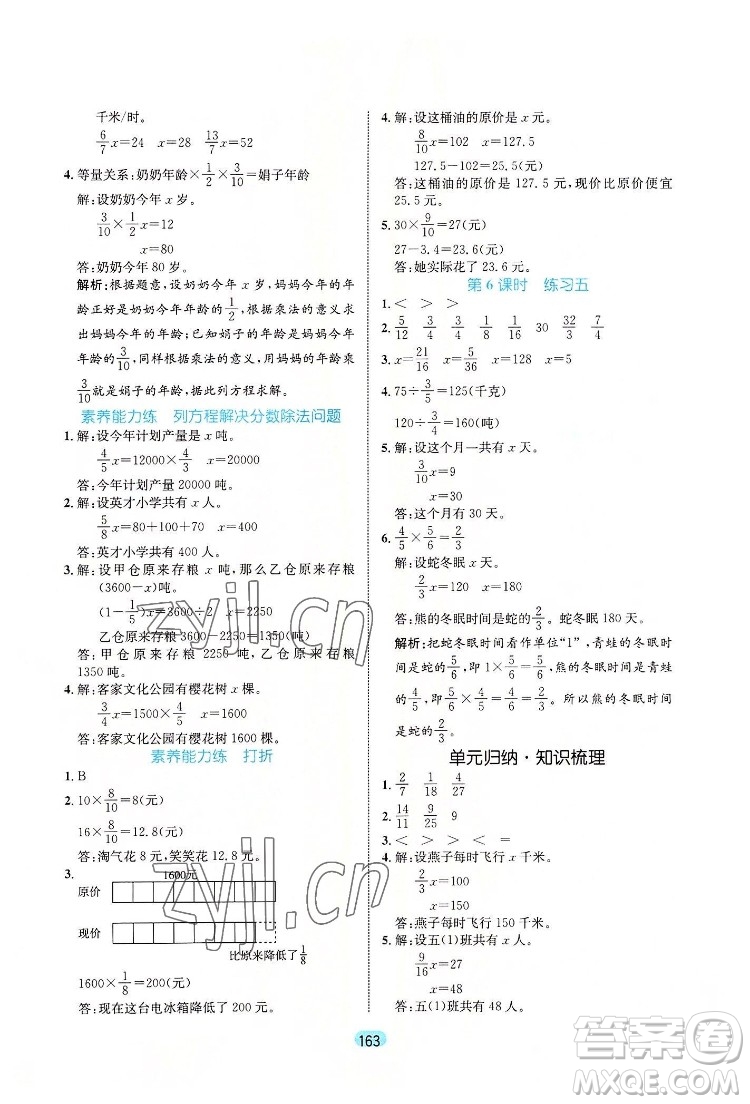 千米/时。
6/7 x=24 x=28 13/7 x=52
4. 等量关系:奶奶年龄×1/2×3/10=娟子年龄
解:设奶奶今年 x 岁。
3/10×1/2 x=12
x=80
答:奶奶今年 80 岁。
解析:根据题意,设奶奶今年 x 岁,妈妈今年的年
龄正好是奶奶今年的1/2,根据乘法的意义求
出妈妈今年的年龄;已知娟子的年龄是妈妈年
龄的3/10,同样根据乘法的意义,用妈妈的年龄乘
3/10就是娟子的年龄,据此列方程求解。
素养能力练 列方程解决分数除法问题
1. 解:设今年计划产量是 x 吨。
4/5 x=12000×4/3 x=20000
答:今年计划产量 20000 吨。
2. 解:设英才小学共有 x 人。
5/8 x=80+100+70 x=400
答:英才小学共有 400 人。
3. 解:设甲仓原来存粮 x 吨,那么乙仓原来存粮
(3600-x)吨。
(1-1/5)x=3600÷2 x=2250
乙仓原来存粮3600-2250=1350(吨)
答:甲仓原来存粮 2250 吨,乙仓原来存粮
1350 吨。
4. 解:客家文化公园有樱花树 x 棵。
3/4 x=1500×4/5 x=1600
答:客家文化公园有樱花树 1600 棵。
素养能力练 打折
1. B
2. 10×8/10=8(元)
16×8/10=12.8(元)
答:淘气花 8 元,笑笑花 12.8 元。
3.
1600元
原价
现价
比原来降低了1/8
1600×1/8=200(元)
答:现在这台电冰箱降低了 200 元。
4. 解:设这桶油的原价是 x 元。
8/10 x=102 x=127.5
127.5-102=25.5(元)
答:这桶油的原价是 127.5 元,现价比原价便宜
25.5 元。
5. 30×9/10=27(元)
27-3.4=23.6(元)
答:她实际花了 23.6 元。
第 6 课时 练习五
1. < > >
2. 5/12 3/4 3/4 1/2 30 32/3 7/4
3. x=21/16 x=5/36 x=128 x=115
4. 75÷3/5=125(千克)
120÷3/4=160(吨)
5. 解:设这个月一共有 x 天。
3/10 x=9
x=30
答:这个月有 30 天。
6. 4/5×5/6=2/3
解:设蛇冬眠 x 天。
2/3 x=120 x=180
答:熊的冬眠时间是蛇的2/3。蛇冬眠 180 天。
解析:把蛇冬眠时间看作单位“1”,青蛙的冬眠时
间是蛇的5/6,即 1×5/6=5/6。熊的冬眠时间是青蛙
的4/5,即5/6×4/5=2/3。所以熊的冬眠时间是
蛇的2/3。
单元归纳·知识梳理
1. 2/7 1/18 4/27
2. 14/11 9/25 9
3. < > > < =
4. 解:设燕子每时飞行 x 千米。
2/3 x=100
x=150
答:燕子每时飞行 150 千米。
5. 解:设五(1)班共有 x 人。
9/16 x=27
x=48
答:五(1)班共有 48 人。
163
zyjl.cn
zyjl.cn
答案圈
MXQE.COM